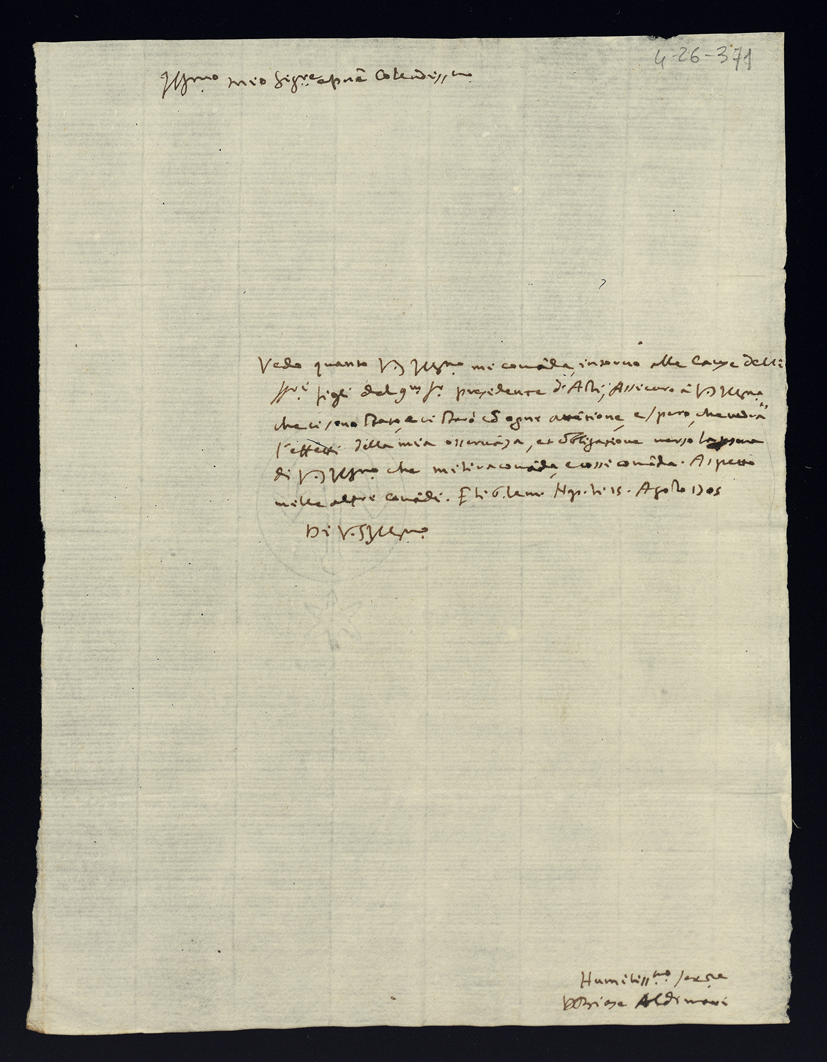 4-26-371
Illmo mio Sigre e prñe Colendissmo
Vedo quanto VS Illma mi comãda, intorno alle Cause delli
SSri figli del qm Sr presidente d'Asti, Assicuro à VS Illma
che ci sono stato, e ci starò cõ ogni attẽtione, e spero, che vedrà
l'effetti della mia osservãza, et obligatione verso la psona
di VS Illma che mi li racomãda, e cossi comãda. Aspetto
mille altri comãdi. E li b. le m. Nap. li 15. Agosto 1705
Di V.S Illma
Humilissmo serre
Biase Aldimari